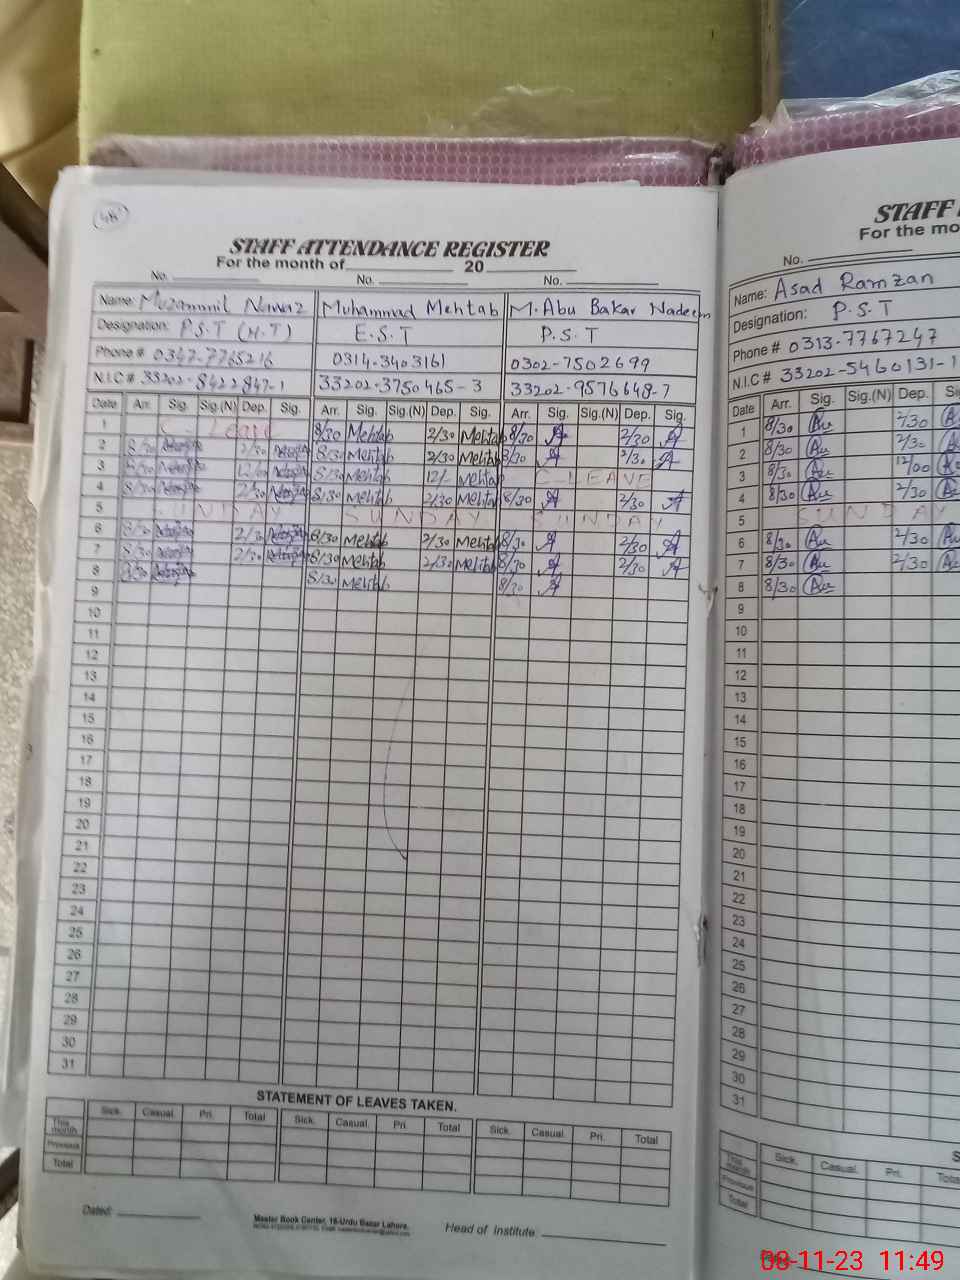 48
STAFF ATTENDANCE REGISTER
For the month of 20
No. No. No.
Name: Muzammil Nawaz Muhammad Mehtab M. Abu Bakar Nadeem
Designation: P.S.T (H.T) E.S.T P.S.T
Phone # 0347-7765216 0314-3403161 0302-7502699
N.I.C # 33202-8422847-1 33202-3750465-3 33202-9576648-7
Date Arr. Sig. Sig.(N) Dep. Sig. Arr. Sig. Sig.(N) Dep. Sig. Arr. Sig. Sig.(N) Dep. Sig.
1 C-Leave 8/30 Mehtab 2/30 Mehtab 8/30 2/30
2 8/30 2/30 8/30 Mehtab 2/30 Mehtab 8/30 2/30
3 8/30 12/00 8/30 Mehtab 12/- Mehtab C-LEAVE
4 8/30 2/30 8/30 Mehtab 2/30 Mehtab 8/30 2/30
5 SUNDAY SUNDAY SUNDAY
6 8/30 2/30 8/30 Mehtab 2/30 Mehtab 8/30 2/30
7 8/30 2/30 8/30 Mehtab 2/30 Mehtab 8/30 2/30
8 8/30 8/30 Mehtab 8/30
9
10
11
12
13
14
15
16
17
18
19
20
21
22
23
24
25
26
27
28
29
30
31
STATEMENT OF LEAVES TAKEN.
Sick. Casual. Pri. Total Sick. Casual. Pri. Total Sick. Casual. Pri. Total
This month
Previous
Total
Dated:
Master Book Center, 16-Urdu Bazar Lahore.
Head of Institute:
STAFF
For the mo
No.
Name: Asad Ramzan
Designation: P.S.T
Phone # 0313-7767247
N.I.C # 33202-5460131-1
Date Arr. Sig. Sig.(N) Dep. Si
1 8/30 2/30
2 8/30 2/30
3 8/30 12/00
4 8/30 2/30
5 SUNDAY
6 8/30 2/30
7 8/30 2/30
8 8/30
9
10
11
12
13
14
15
16
17
18
19
20
21
22
23
24
25
26
27
28
29
30
31
S
Sick. Casual. Pri. Tota
This month
Previous
Total
08-11-23 11:49